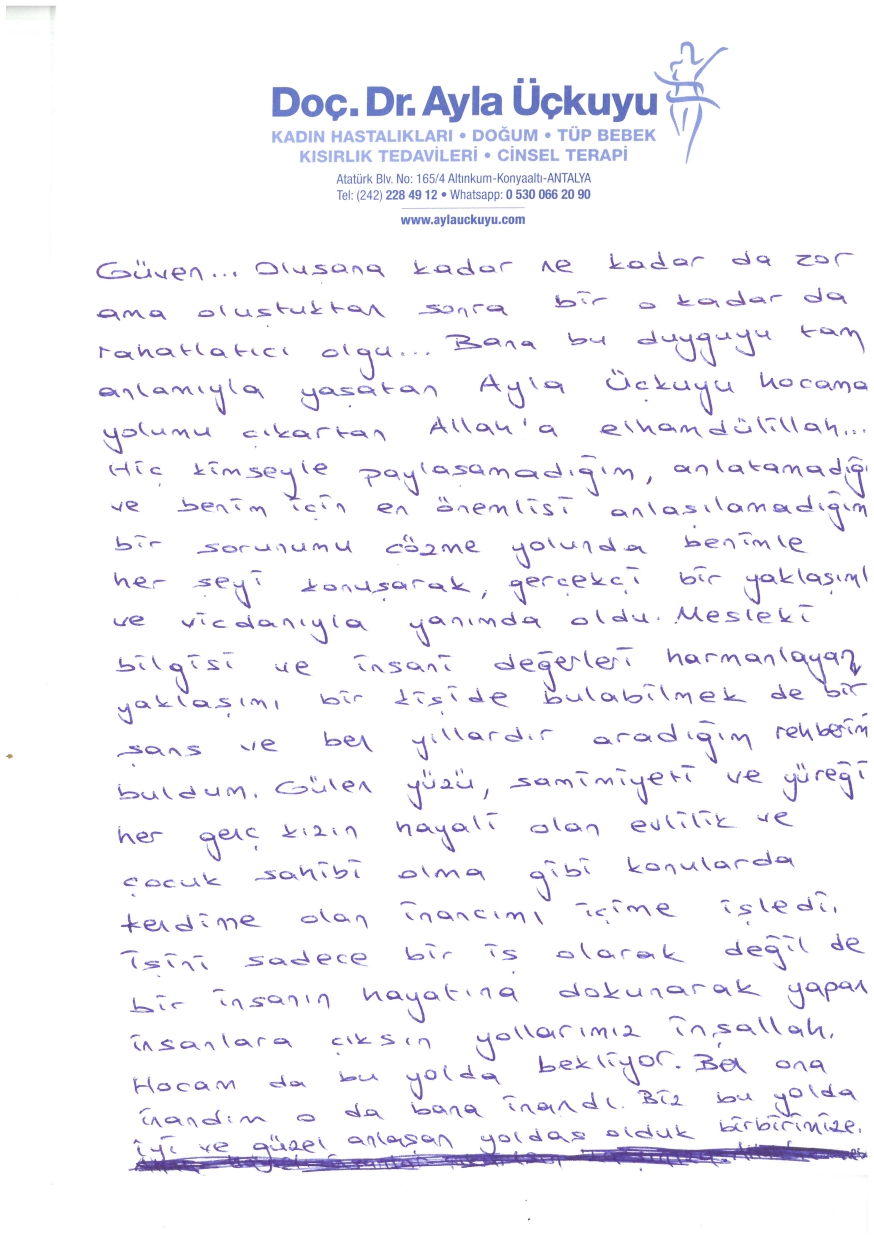 Doç. Dr. Ayla Üçkuyu
KADIN HASTALIKLARI • DOĞUM • TÜP BEBEK
KISIRLIK TEDAVİLERİ • CİNSEL TERAPİ
Atatürk Blv. No: 165/4 Altınkum-Konyaaltı-ANTALYA
Tel: (242) 228 49 12 • Whatsapp: 0 530 066 20 90
www.aylauckuyu.com
Güven... Olusana kadar ne kadar da zor
ama olustuktan sonra bir o kadar da
rahatlatıcı olgu... Bana bu duyguyu tam
anlamıyla yaşatan Ayla Üçkuyu hocama
yolumu çıkartan Allah'a elhamdülillah...
Hiç kimseyle paylaşamadığım, anlatamadığı
ve benim için en önemlisi anlaşılamadığım
bir sorunumu çözme yolunda benimle
her şeyi konuşarak, gerçekçi bir yaklaşım
ve vicdanıyla yanımda oldu. Mesleki
bilgisi ve insani değerleri harmanlayan
yaklaşımı bir kişide bulabilmek de bir
şans ve ben yıllardır aradığım rehberim
buldum. Gülen yüzü, samimiyeti ve yüreği
her genç kızın hayali olan evlilik ve
çocuk sahibi olma gibi konularda
kendime olan inancımı içime işledi.
İşini sadece bir iş olarak değil de
bir insanın hayatına dokunarak yapan
insanlara çıksın yollarımız inşallah.
Hocam da bu yolda bekliyor. Ben ona
inandım o da bana inandı. Biz bu yolda
iyi ve güzel anlaşan yoldaş olduk birbirimize.